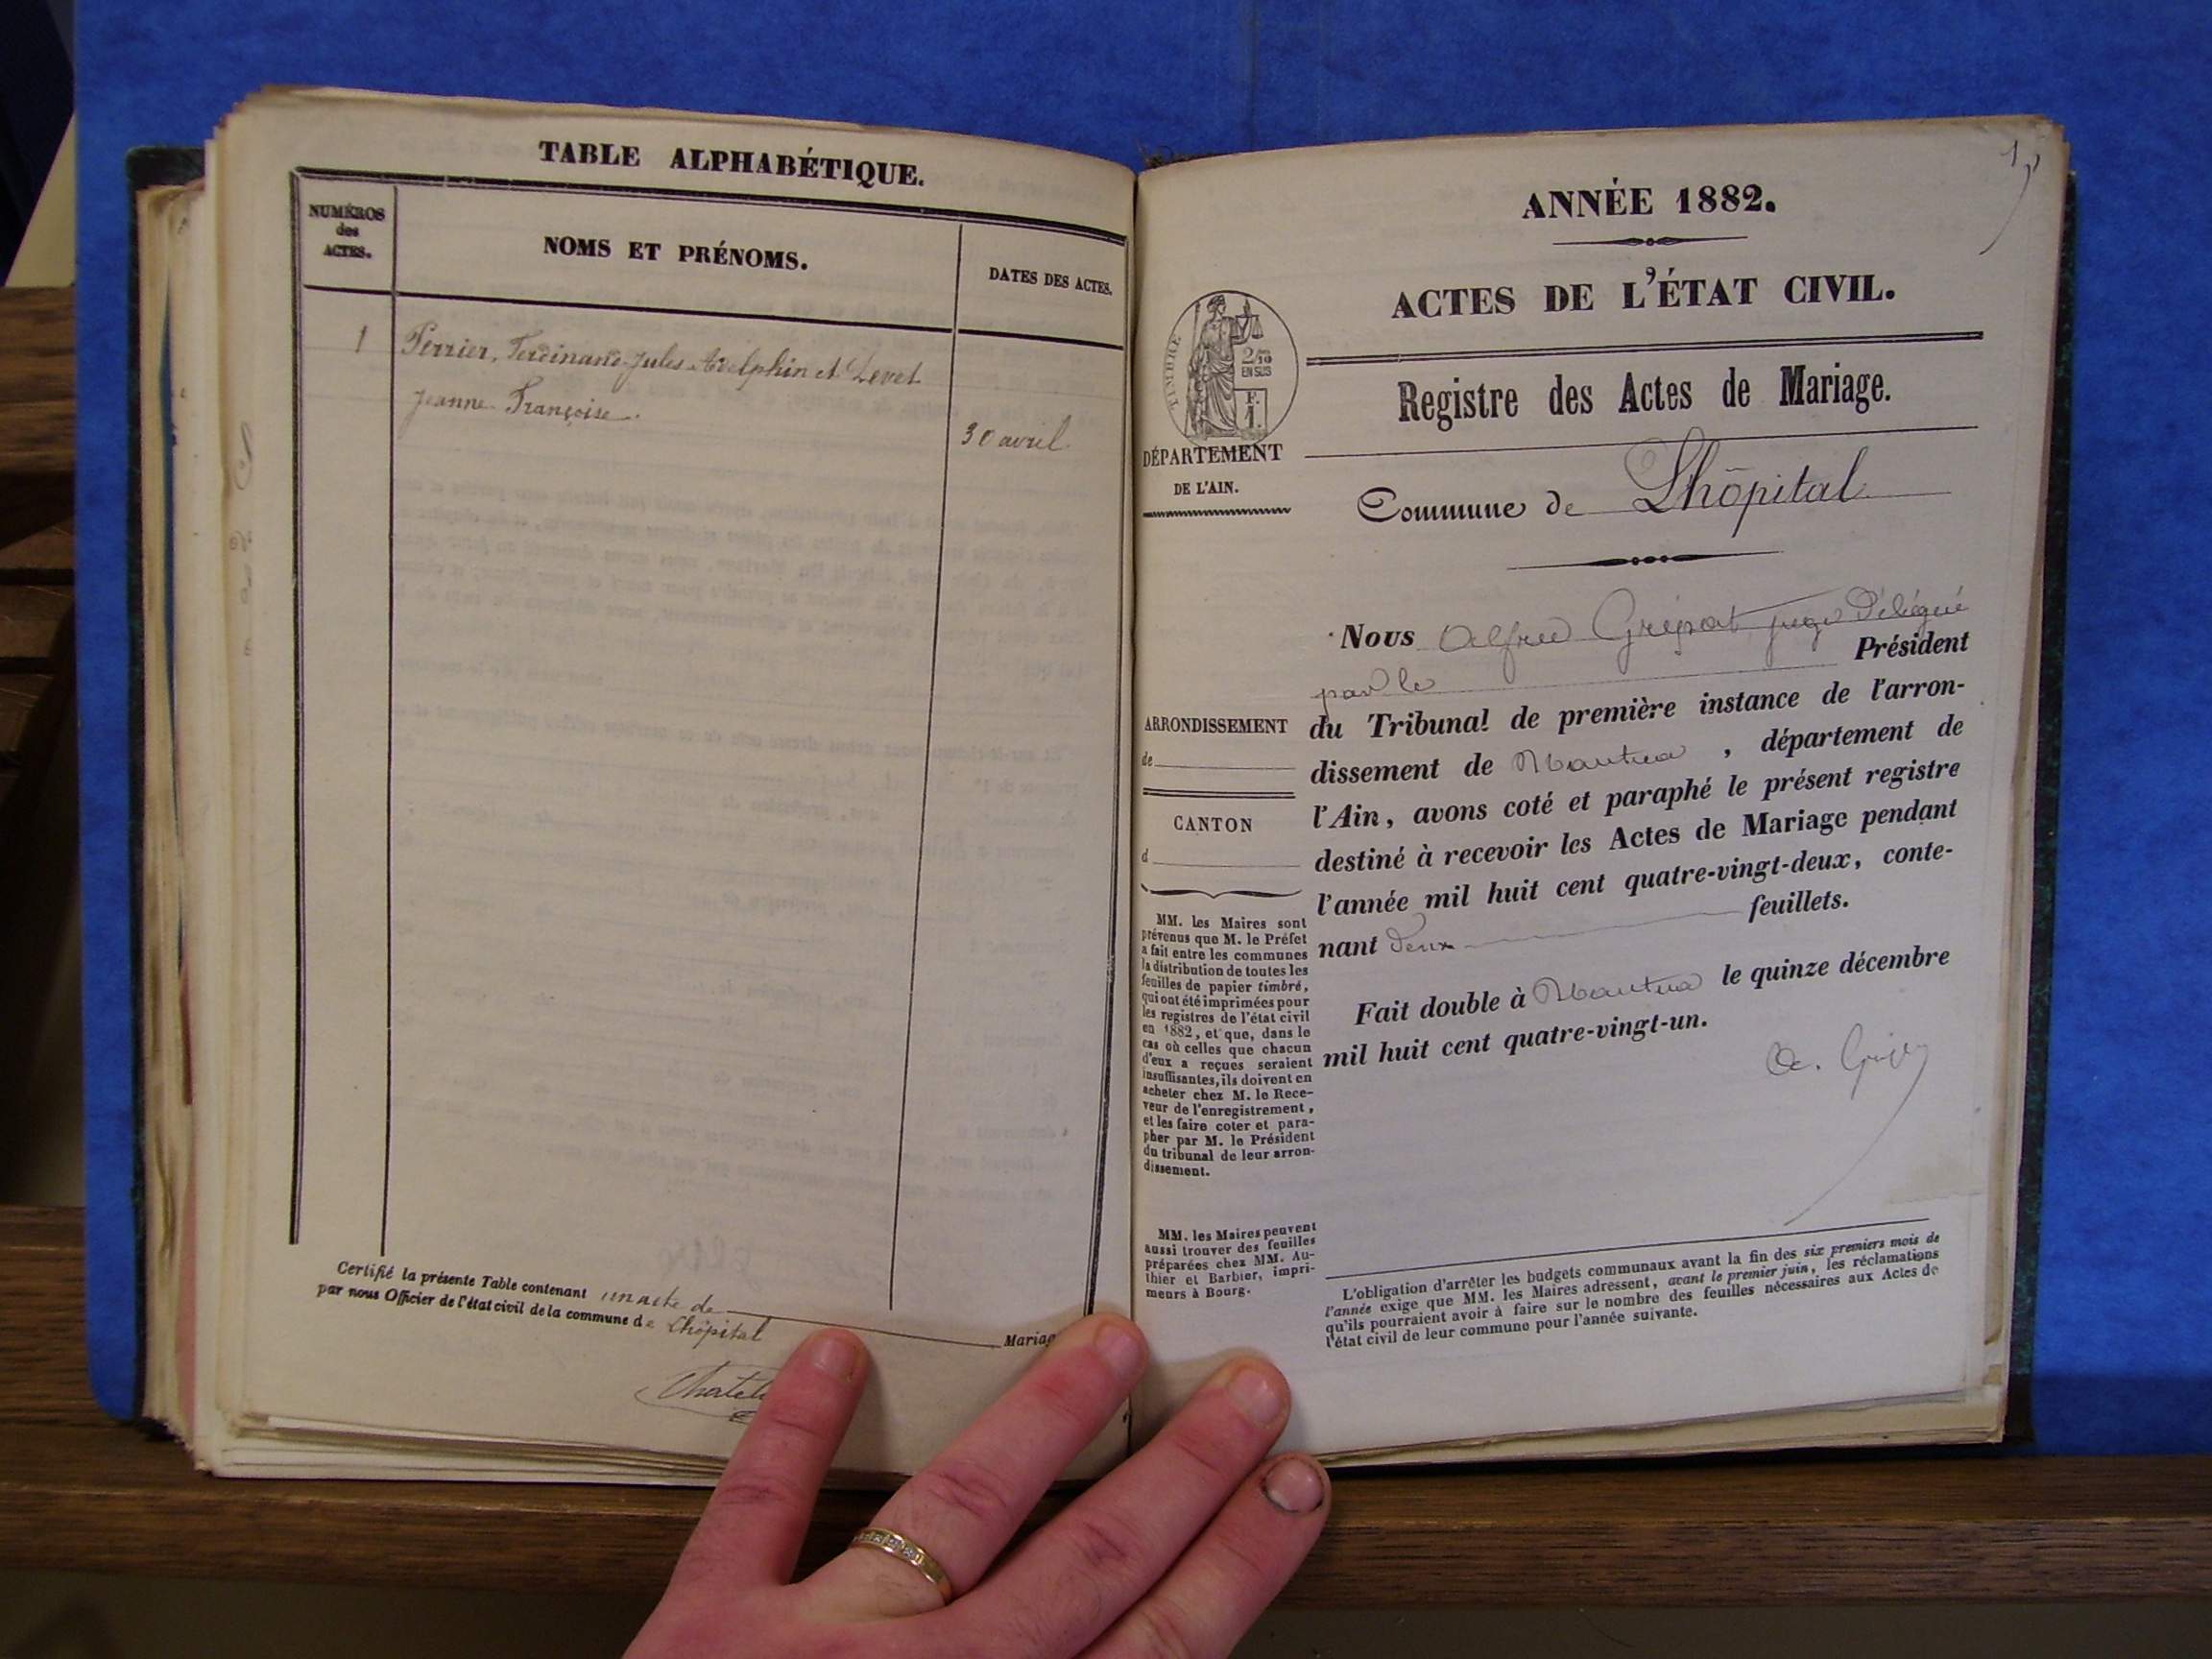 TABLE ALPHABÉTIQUE.
NUMÉROS
des
ACTES.
NOMS ET PRÉNOMS.
DATES DES ACTES.
1
Perrier, Ferdinand-Jules-Adelphin et Levet
Jeanne-Françoise.
30 avril
Certifié la présente Table contenant un acte de
Mariag
par nous Officier de l'état civil de la commune de Lhôpital
1
ANNÉE 1882.
ACTES DE L'ÉTAT CIVIL.
TIMBRE
2/10
EN SUS
F.
1.
DÉPARTEMENT
DE L'AIN.
Registre des Actes de Mariage.
Commune de Lhôpital
Nous Alfred juge délégué
par le Président
du Tribunal de première instance de l'arron-
dissement de Nantua, département de
l'Ain, avons coté et paraphé le présent registre
destiné à recevoir les Actes de Mariage pendant
l'année mil huit cent quatre-vingt-deux, conte-
nant deux feuillets.
Fait double à Nantua le quinze décembre
mil huit cent quatre-vingt-un.
ARRONDISSEMENT
de
CANTON
d
MM. les Maires sont
prévenus que M. le Préfet
a fait entre les communes
la distribution de toutes les
feuilles de papier timbré,
qui ont été imprimées pour
les registres de l'état civil
en 1882, et que, dans le
cas où celles que chacun
d'eux a reçues seraient
insuffisantes, ils doivent en
acheter chez M. le Rece-
veur de l'enregistrement,
et les faire coter et para-
pher par M. le Président
du tribunal de leur arron-
dissement.
MM. les Maires peuvent
aussi trouver des feuilles
préparées chez MM. Au-
thier et Barbier, impri-
meurs à Bourg.
L'obligation d'arrêter les budgets communaux avant la fin des six premiers mois de
l'année exige que MM. les Maires adressent, avant le premier juin, les réclamations
qu'ils pourraient avoir à faire sur le nombre des feuilles nécessaires aux Actes de
l'état civil de leur commune pour l'année suivante.